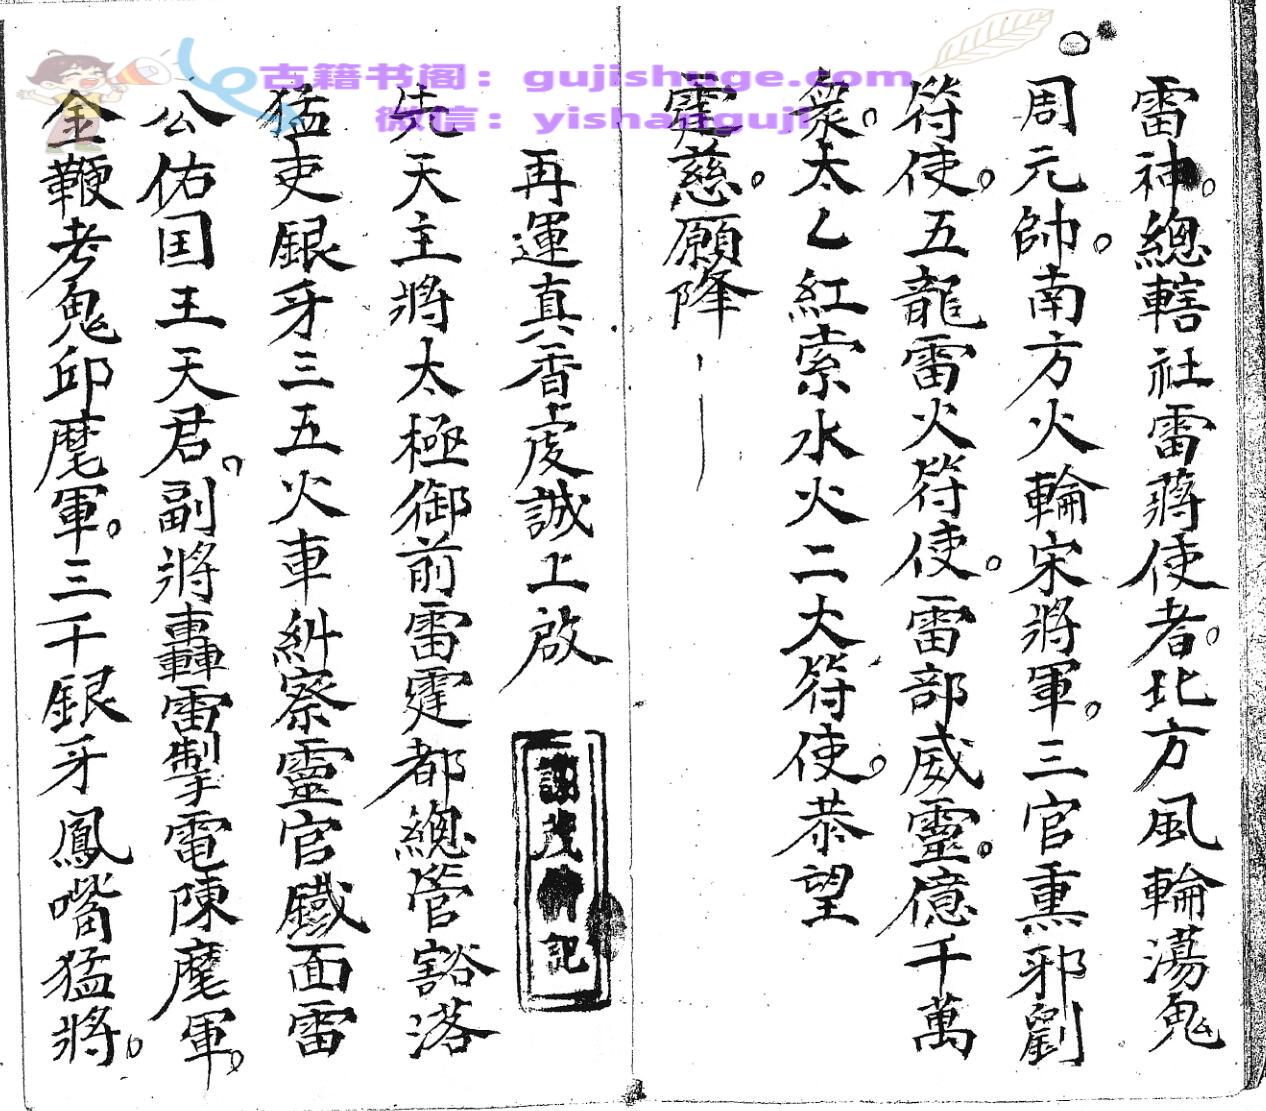 古籍书阁：gujishuge.com
微信：yishanguji
雷神。總轄社雷蔣使者。北方風輪蕩鬼
周元帥。南方火輪宋將軍。三官熏邪劉
符使。五龍雷火符使。雷部威靈。億千萬
衆。太乙紅索水火二大符使。恭望
霆慈。願降
再運真香虔誠上啟
記
先天主將太極御前雷霆都總管豁落
猛吏銀牙三五火車糾察靈官鐵面雷
公佑国王天君。副將轟雷掣電陳麾軍。
金鞭考鬼邱麾軍。三千銀牙鳳嘴猛將。